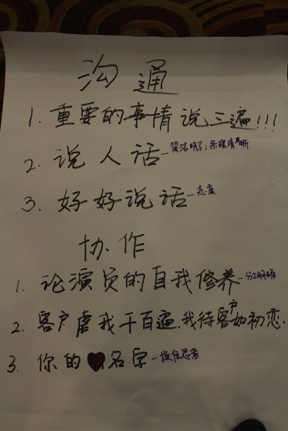 沟通
1. 重要的事情说三遍!!!
2. 说人话-简洁明了;条理清晰
3. 好好说话-态度
协作
1. 论演员的自我修养-分工明确
2. 客户虐我千百遍,我待客户如初恋.
3. 你的♥名字-换位思考